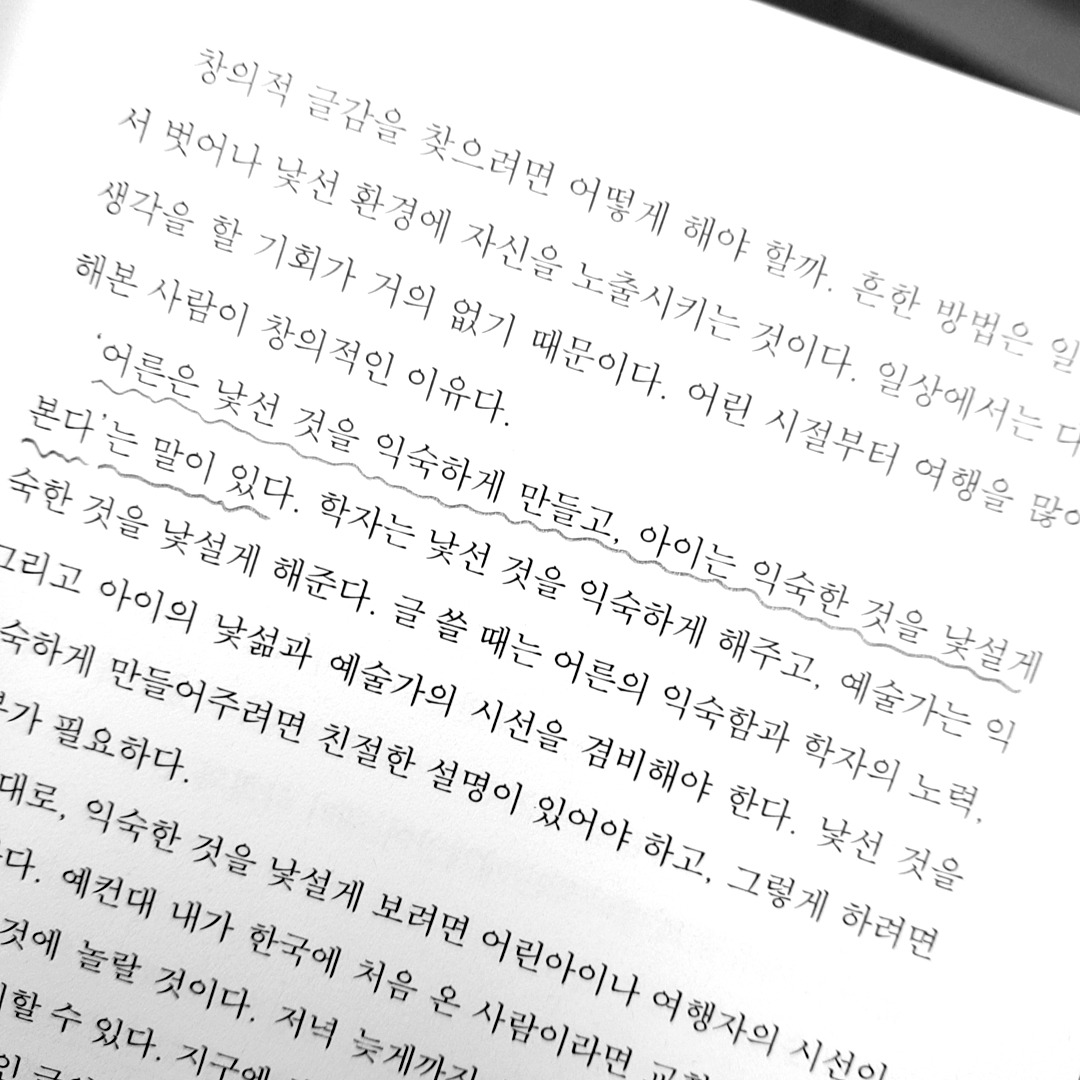 창의적 글감을 찾으려면 어떻게 해야 할까. 흔한 방법은 일
서 벗어나 낯선 환경에 자신을 노출시키는 것이다. 일상에서는 다
생각을 할 기회가 거의 없기 때문이다. 어린 시절부터 여행을 많이
해본 사람이 창의적인 이유다.
‘어른은 낯선 것을 익숙하게 만들고, 아이는 익숙한 것을 낯설게
본다’는 말이 있다. 학자는 낯선 것을 익숙하게 해주고, 예술가는 익
숙한 것을 낯설게 해준다. 글 쓸 때는 어른의 익숙함과 학자의 노력,
그리고 아이의 낯섦과 예술가의 시선을 겸비해야 한다. 낯선 것을
숙하게 만들어주려면 친절한 설명이 있어야 하고, 그렇게 하려면
가 필요하다.
대로, 익숙한 것을 낯설게 보려면 어린아이나 여행자의 시선이
다. 예컨대 내가 한국에 처음 온 사람이라면
것에 놀랄 것이다. 저녁 늦게까지
할 수 있다. 지구에